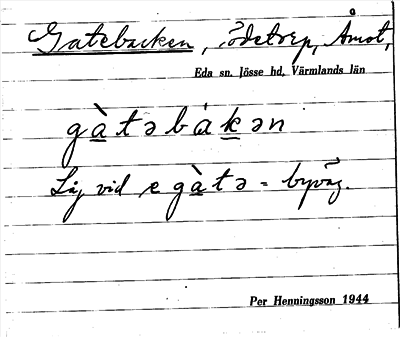 Gatebacken, Ödetorp, Åmot,
Eda sn. Jösse hd, Värmlands län
gàtəbákən
Låg vid e gàtə = byväg.
Per Henningsson 1944